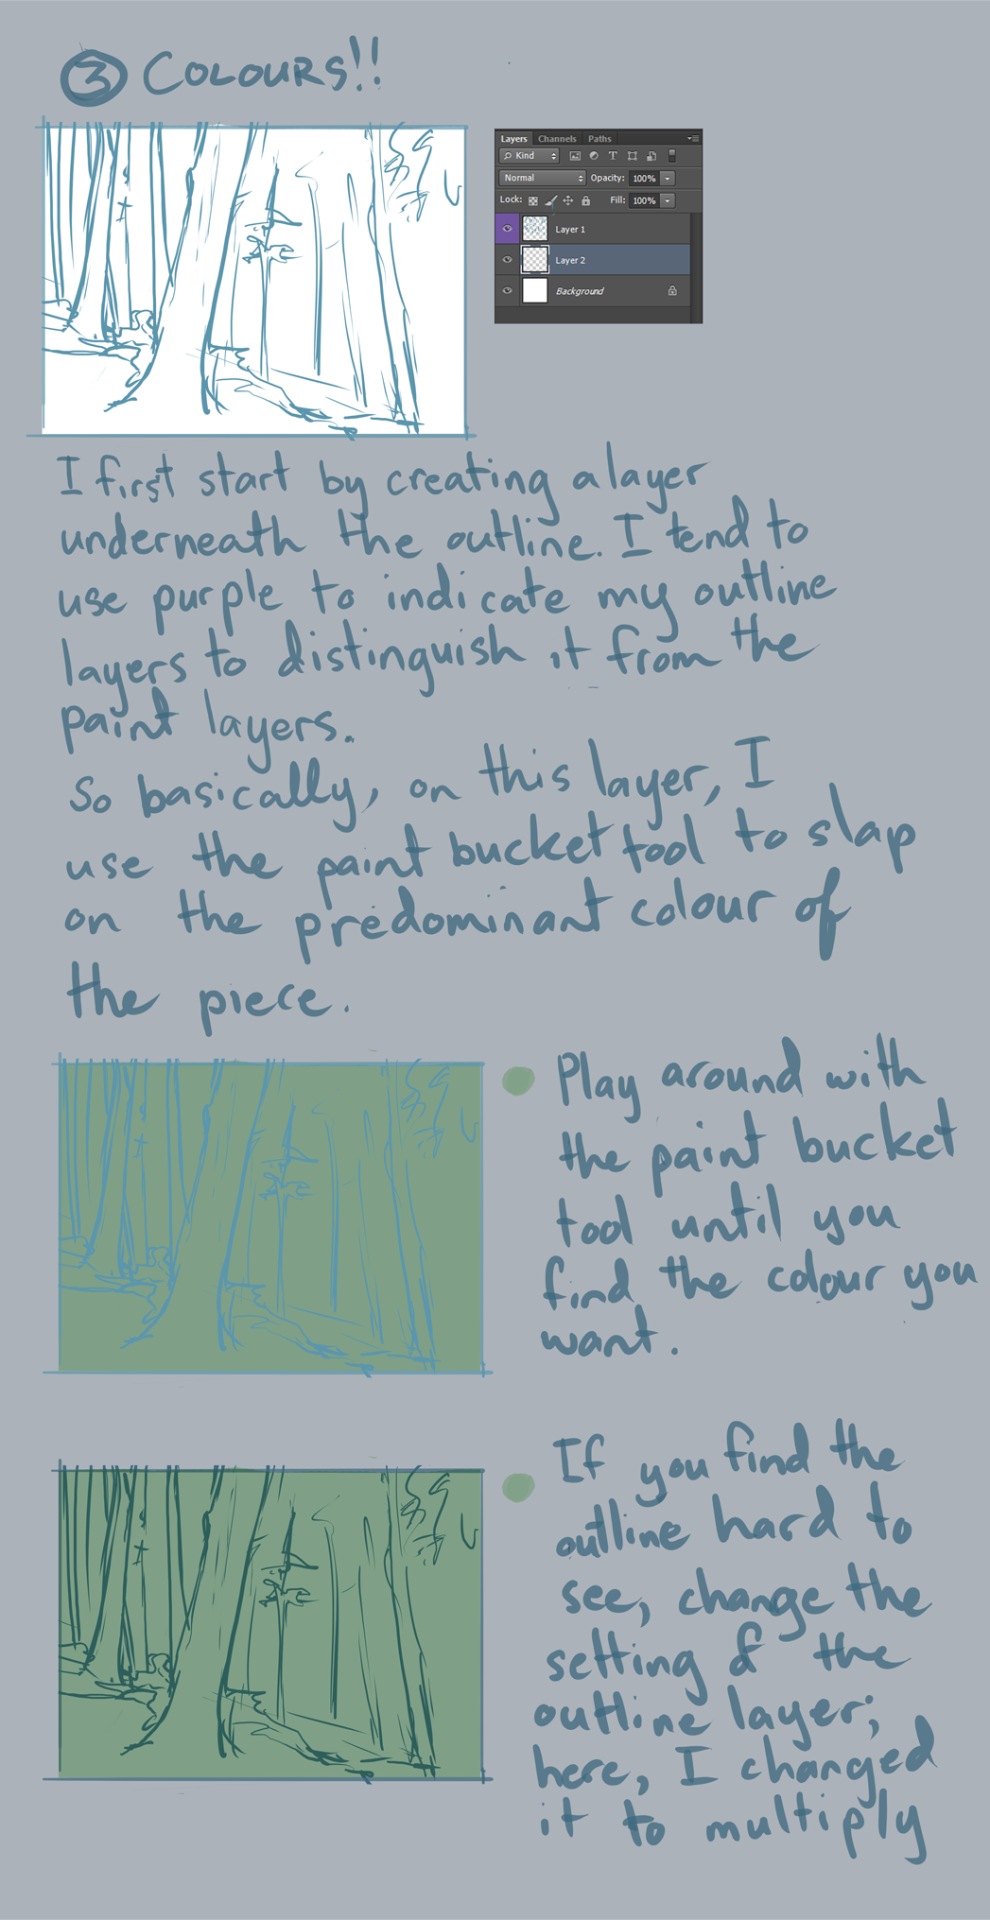 3 COLOURS!!
Layers Channels Paths
Kind
Normal Opacity: 100%
Lock: Fill: 100%
Layer 1
Layer 2
Background
I first start by creating a layer
underneath the outline. I tend to
use purple to indicate my outline
layers to distinguish it from the
paint layers.
So basically, on this layer, I
use the paint bucket tool to slap
on the predominant colour of
the piece.
Play around with
the paint bucket
tool until you
find the colour you
want.
If you find the
outline hard to
see, change the
setting of the
outline layer;
here, I changed
it to multiply